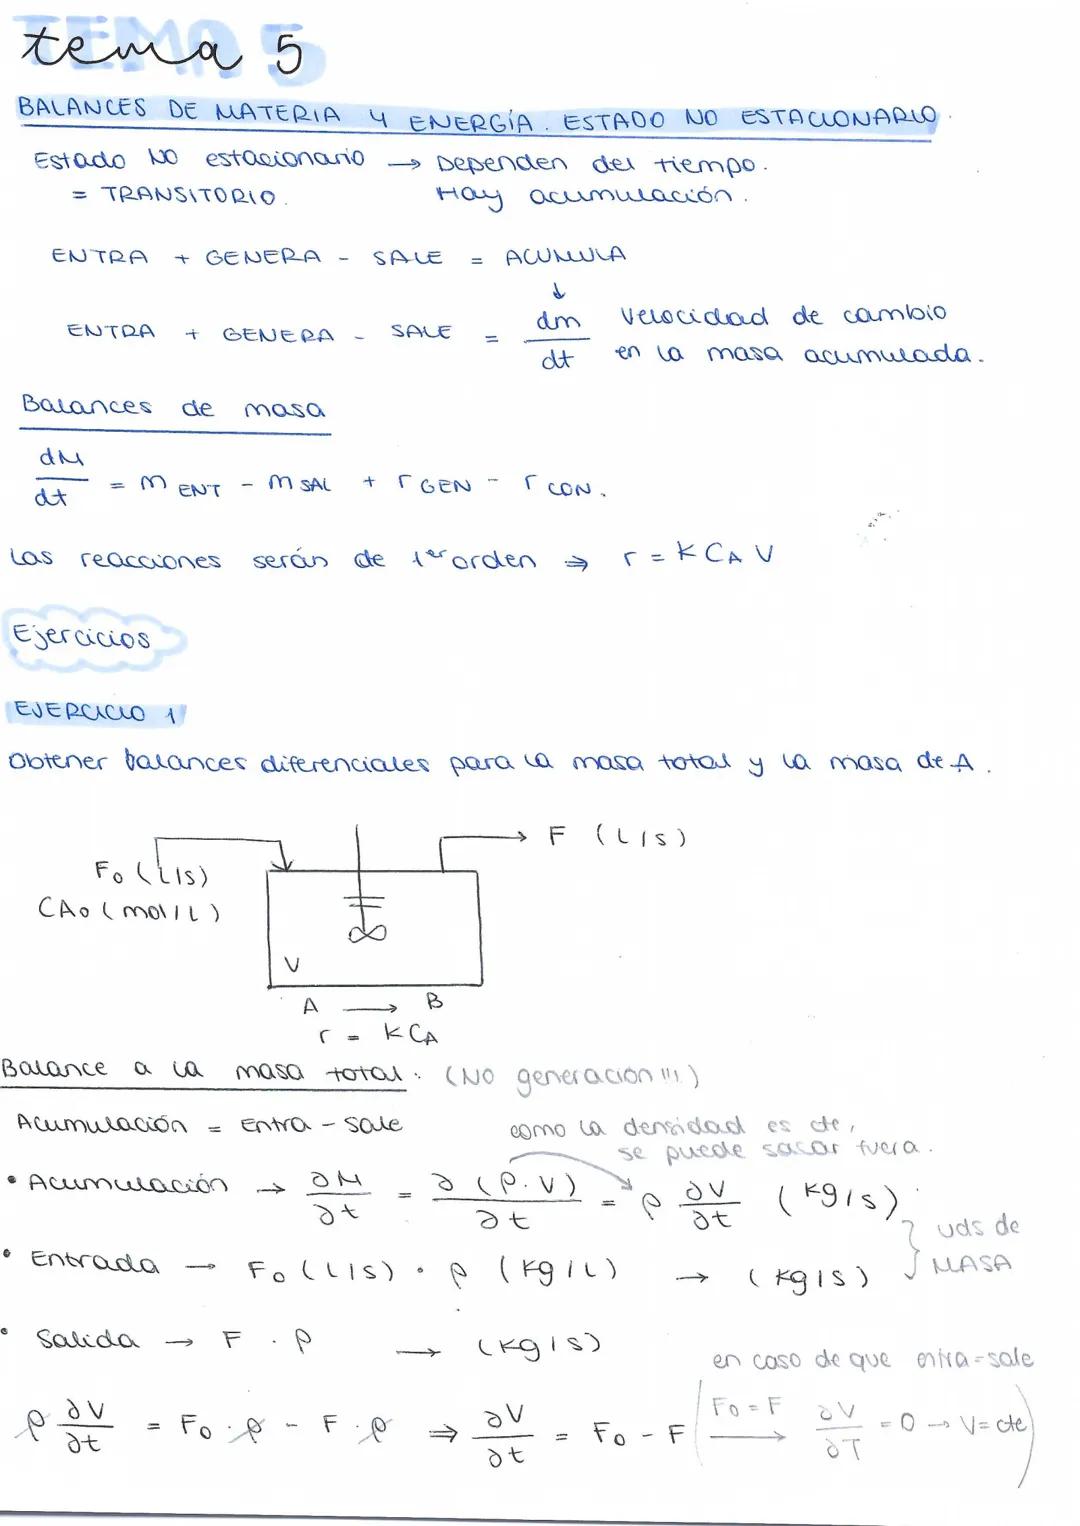 tema 5
BALANCES DE MATERIA Y ENERGÍA. ESTADO NO ESTACIONARIO.
Estado NO estacionario → Dependen del tiempo.
= TRANSITORIO. Hay acumulación.
ENTRA + GENERA - SALE = ACUMULA
↓
ENTRA + GENERA - SALE = dm/dt velocidad de cambio
en la masa acumulada.
Balances de masa
dM/dt = m ENT - m SAL + r GEN - r CON.
Las reacciones serán de 1er orden ⇒ r = K CA V
Ejercicios
EJERCICIO 1
Obtener balances diferenciales para la masa total y la masa de A.
F (L/s)
F0 (L/s)
CA0 (mol/L)
V
A → B
r = K CA
Balance a la masa total: (NO generación!!!)
Acumulación = Entra - Sale
como la densidad es cte,
se puede sacar fuera.
• Acumulación → ∂M/∂t = ∂(ρ.V)/∂t = ρ ∂V/∂t (kg/s)
uds de
MASA
• Entrada → F0 (L/s) · ρ (kg/L) → (kg/s)
• Salida → F · ρ → (kg/s)
en caso de que entra=sale
ρ ∂V/∂t = F0 · ρ - F · ρ ⇒ ∂V/∂t = F0 - F (F0 = F → ∂V/∂T = 0 → V = cte)